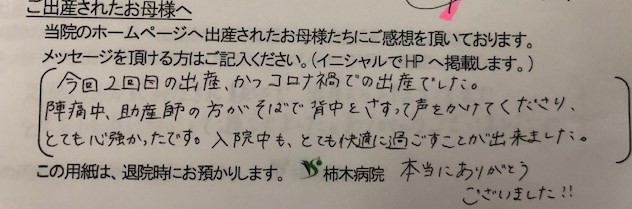 ご出産されたお母様へ
当院のホームページへ出産されたお母様たちにご感想を頂いております。
メッセージを頂ける方はご記入ください。(イニシャルでHPへ掲載します。)
今回2回目の出産、かつコロナ禍での出産でした。
陣痛中、助産師の方がそばで背中をさすって声をかけてくださり、
とても心強かったです。入院中も、とても快適に過ごすことが出来ました。
この用紙は、退院時にお預かりします。 柿木病院 本当にありがとう
ございました!!